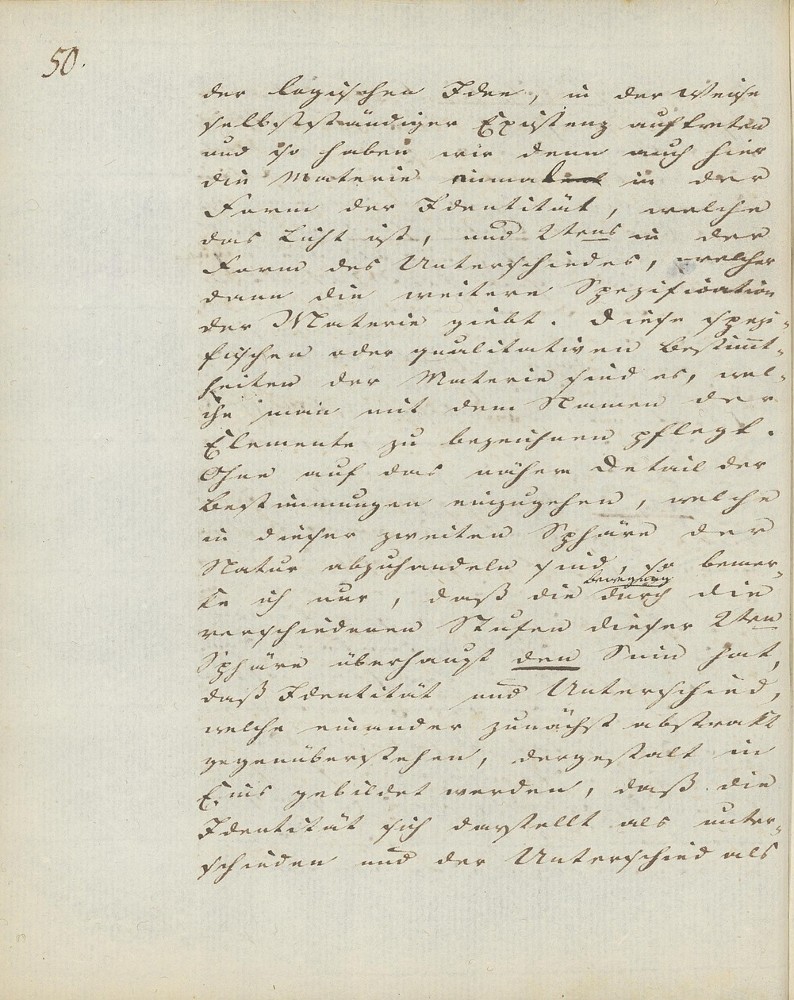 50.
der logischen Idee, in der Weise
selbstständiger Existenz auftreten
und so haben wir denn auch hier
die Materie einmal in der
Form der Identität, welche
das Licht ist, und 2tens in der
Form des Unterschiedes, welcher
dann die weitere Spezification
der Materie giebt. Diese spezi-
fischen oder qualitativen Bestimmt-
heiten der Materie sind es, wel-
che man mit dem Namen der
Elemente zu bezeichnen pflegt.
Ohne auf das nähere Detail der
Bestimmungen einzugehen, welche
in dieser zweiten Sphäre der
Natur abzuhandeln sind, so bemer-
ke ich nur, daß die Bewegung durch die
verschiedenen Stufen dieser 2ten
Sphäre überhaupt den Sinn hat,
daß Identität und Unterschied,
welche einander zunächst abstrakt
gegenüberstehen, dergestalt in
Eins gebildet werden, daß die
Identität sich darstellt als unter-
schieden und der Unterschied als